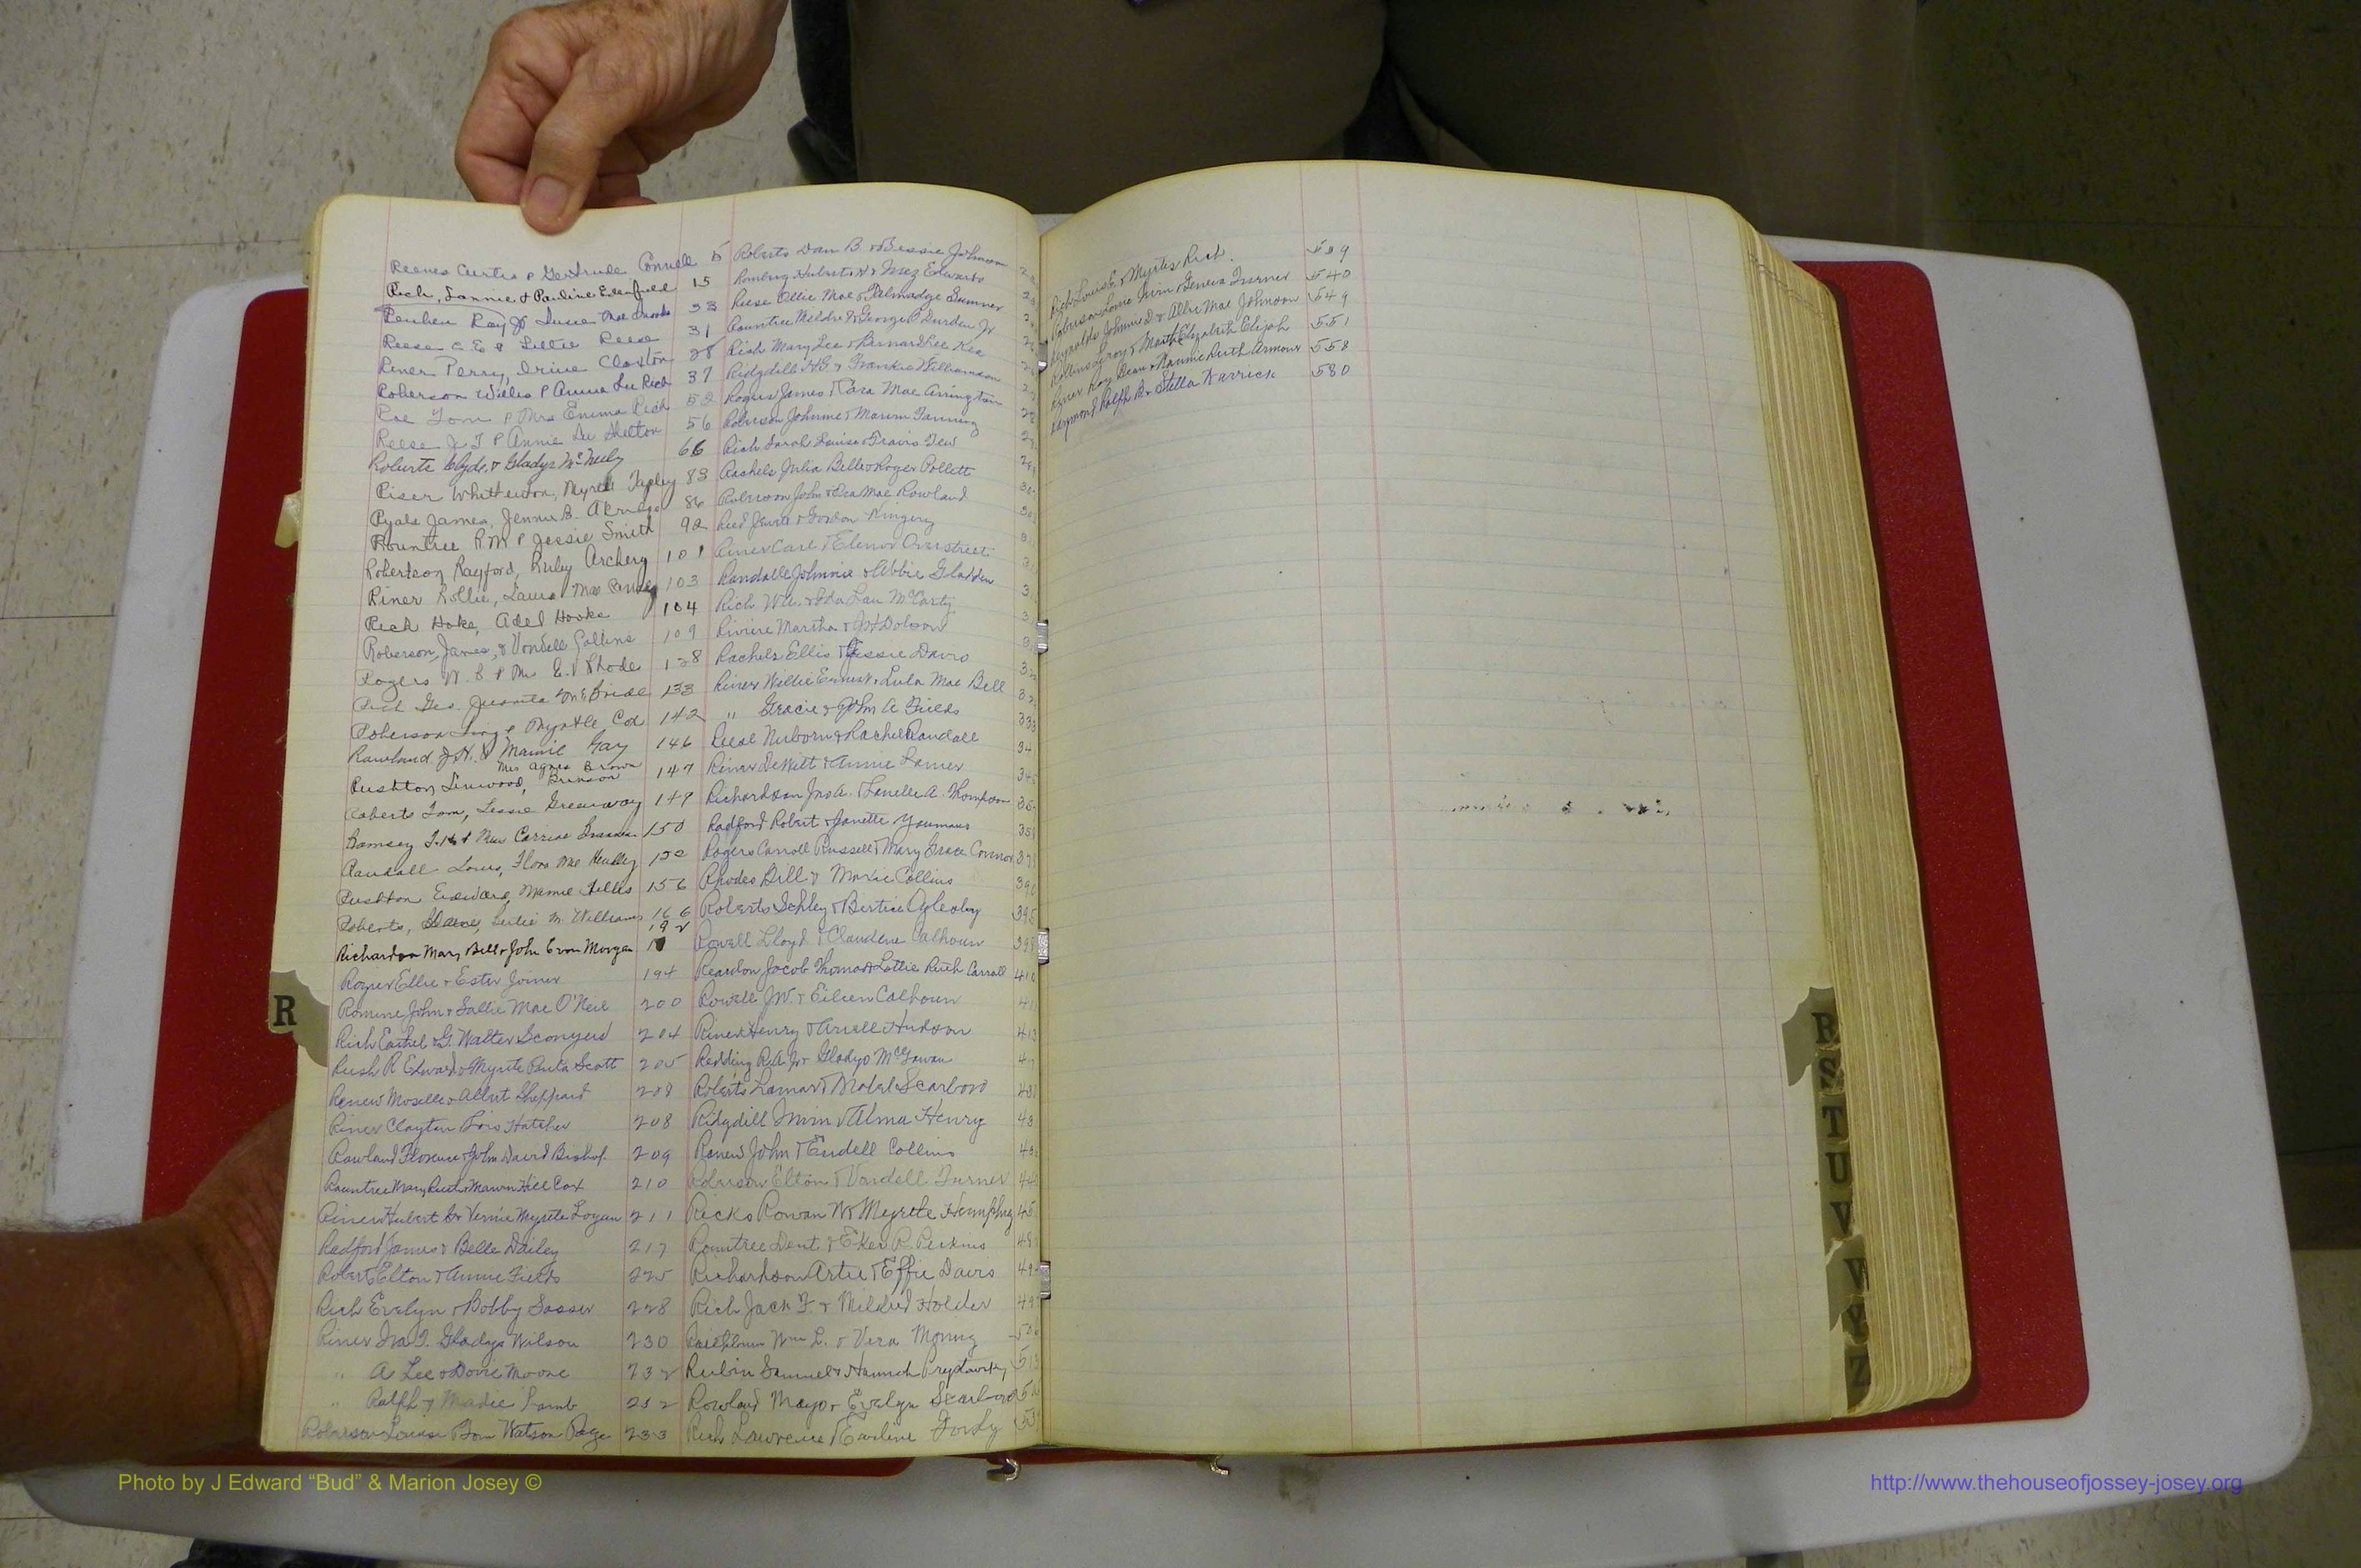 Reeves Curtis & Gertrude Connell 5
Rich, Lannie & Pauline Edenfield 15
Reuben Ray Jr Susie Mae 33
Reese C. E. & Lillie Reese 31
Riner Perry, Irine Claxton 28
Roberson Willis & Anna Lu Rich 37
Roe Tom & Mrs Emma Rich 52
Reese J. T & Annie Lu Shelton 56
Roberts Clyde & Gladys McNeely 66
Riser Whittenton, Myrtle Tapley 83
Ryals James, Jennie B. 86
Rountree R.M & Jessie Smith 92
Robertson Rayford, Ruby Archery 101
Riner Rollie, Laura Mae 103
Rich Hoke, Adel Hooks 104
Roberson, James, & Vondell Collins 109
Rogers W. & Mrs E. V Rhode 128
Rich Geo. Juanita McBride 133
Roberson & Myrtle Cox 142
Rowland J. H. & Mamie Gay 146
Rushton Linwood, Mrs Agnes Brown Brinson 147
Roberts Tom, Lessie Greenway 149
Ramsey & Miss Carrine 150
Randall Louis, Flora Mae 152
Rushton Edward, Mamie 156
Roberts, Leslie M. Williams 166
Richardson Mary Bell & John Evan Morgan 192
Rozier Ellie & Ester Joiner 194
Romine John & Sallie Mae O'Neil 200
Rich & G. Walter Sconyers 204
Rush R Edward & Myrtle Scott 205
Renew Moselle & Albert Sheppard 208
Riner Clayton Lois Hatcher 208
Rowland Florence & John David Bishop. 209
Rountree Mary Ruth & Marvin Hill Cox 210
Riner Hubert & Vernie Myrtle Logan 211
Radford James & Belle Dailey 217
Robert Elton & Annie Fields 225
Rich Evelyn & Bobby Sasser 228
Riner Ira T. Gladys Wilson 230
" A Lee & Dovie Moore 232
" Ralph & Madie Lamb 232
Roberson Louise Tom Watson Page 233
Roberts Dan B & Bessie Johnson
Hubert & Inez Edwards
Reese Ollie Mae & Talmadge Sumner
Rountree Mildred & George P Durden Jr
Rich Mary Lee & Bernard Lee Kea
Ridgdill H.G. & Frankie Williamson
Rogers James & Cora Mae Arrington
Roberson Johnnie & Marion Fanning
Rich Sarah Louise & Travis Tew
Rachels Julia Belle & Roger Pollett
Roberson John & Mae Rowland
Reed Jewell & Gordon Kingery
Riner Carl & Elenor Overstreet
Randall Johnnie & Abbie Gladden
Rich Wm. & Ida Lou McCarty
Riviere Martha & Dobson
Rachels Ellis & Jessie Davis
Riner Willie Earnest & Lula Mae Bell
" Gracie & John A Fields 333
Reese Nuborn & Rachel Randall
Riner DeWitt & Annie Lanier
Richardson Jno A. & Lanelle A. Thompson
Radford Robert & Janette Youmans
Rogers Carroll Russell & Mary Grace Connor
Rhodes Bill & Moxie Collins 390
Roberts Schley & Birtice Oglesby 395
Rowell Lloyd & Claudene Calhoun
Reardon Jacob Thomas & Lottie Ruth Carroll 410
Rowell J.W. & Eileen Calhoun
Riner Henry & Arrelle Hudson 413
Redding R.A. Jr & Gladys McGowan
Roberts Lamar & Mabel Scarboro
Ridgdill Irvin & Alma Henry
Renew John & Eudell Collins
Roberson Elton & Vardell Turner
Ricks Rowan W & Myrtle Humphrey
Rountree Dent & R. Perkins
Richardson Artie & Effie Davis
Rich Jack F. & Mildred Holder
Wm L. & Vera
Rubin Samuel & Hannah
Rowland Mayo & Evelyn Scarboro
Rich Lawrence & Earline Gordy
Rich Louis E. & Myrtis Rich. 539
Roberson Lonie Irvin & Geneva Turner 540
Reynolds Johnnie D & Allie Mae Johnson 549
Rollins Leroy & Martha Elizabeth Elijah 551
Riner Roy Dean & Naomie Ruth Armour 558
Raymond Ralph B & Stella Warrick 580
R
R
S
T
U
V
W
Y
Z
Photo by J Edward “Bud” & Marion Josey ©
http://www.thehouseofjossey-josey.org